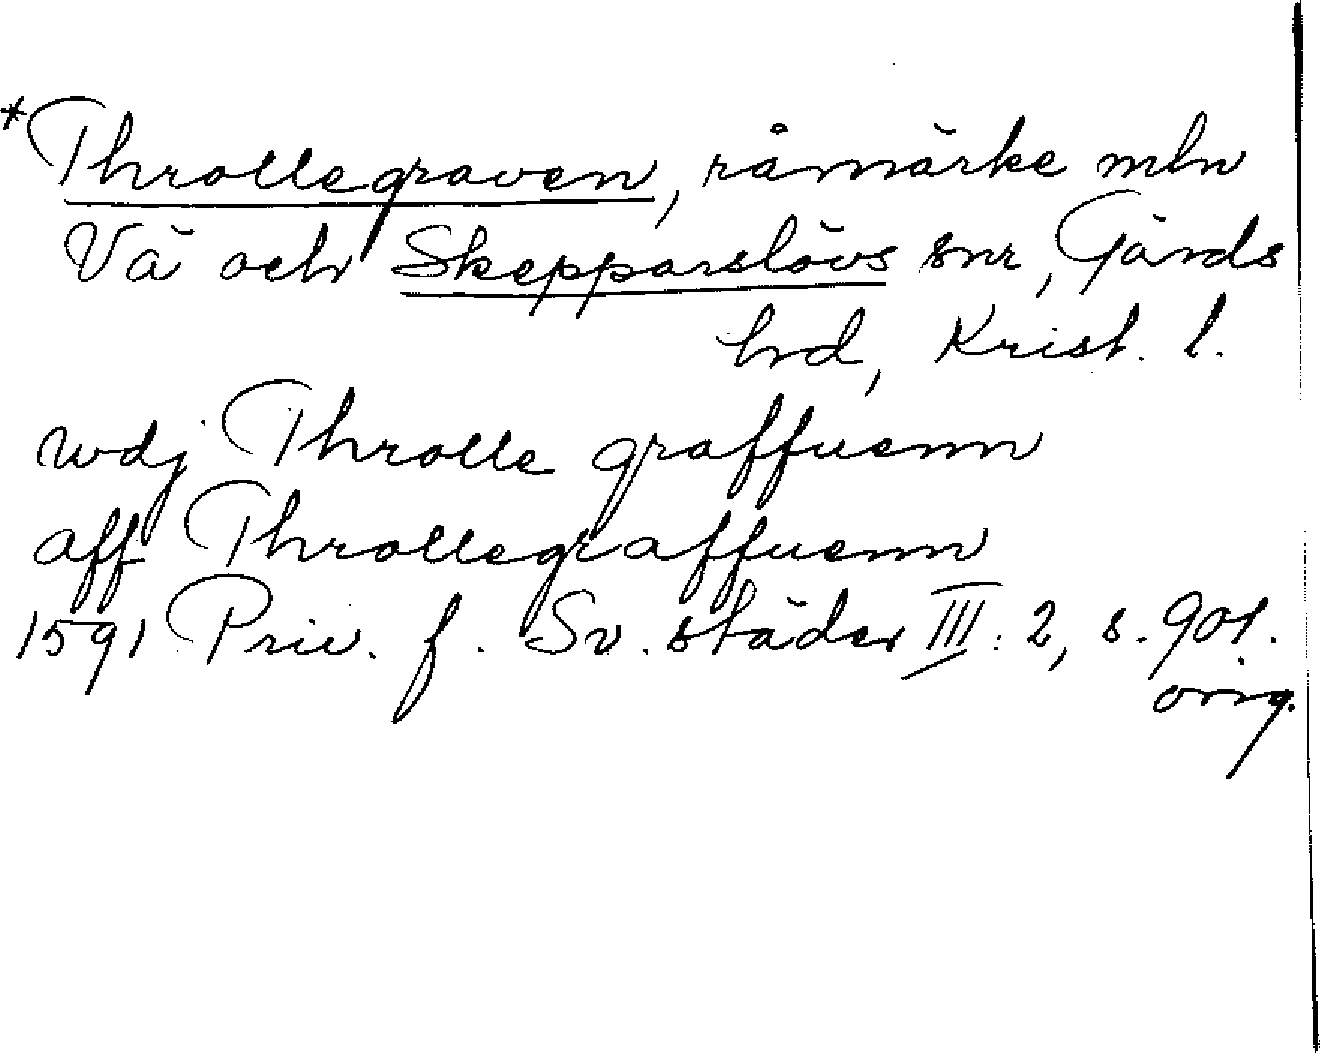 *Throllegraven, råmärke mln
Vä och Skepparslövs snr, Gärds
hd, Krist. l.
wdj Throlle graffuenn
aff Throllegraffuenn
1591 Priv. f. Sv. städer III: 2, s. 901.
orig.